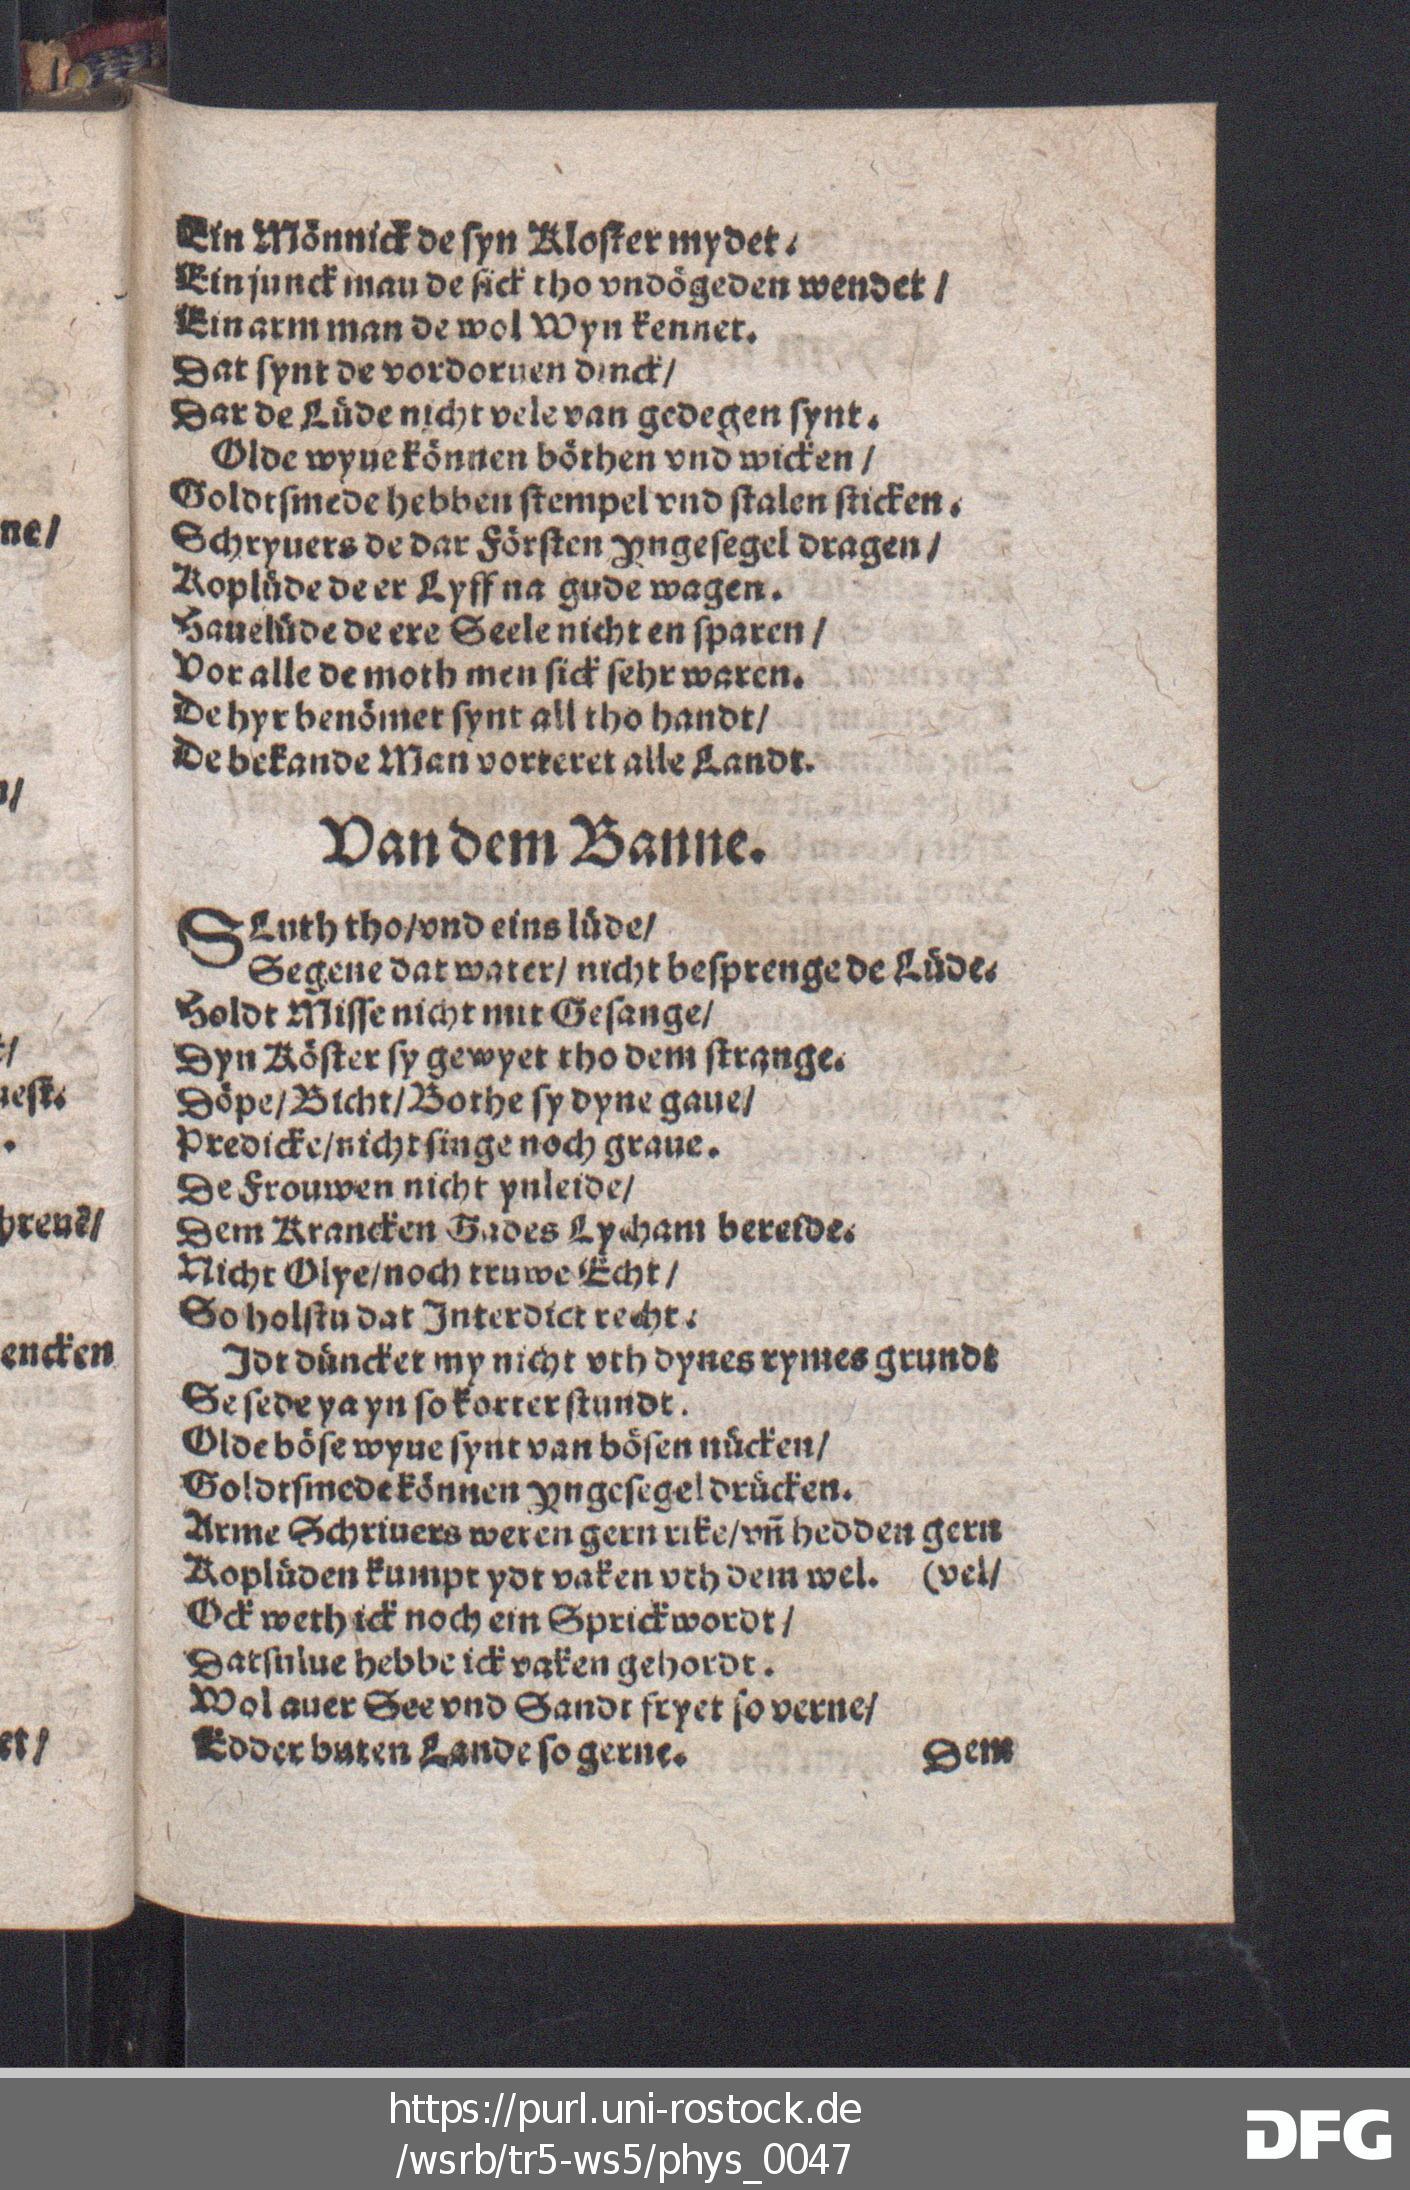 Ein Mönnick de ſyn Kloſter mydet.
Ein junck mau de ſick tho vndögeden wendet /
Ein arm man de wol Wyn kennet.
Dat ſynt de vordoruen dinck /
Dar de Lüde nicht vele van gedegen ſynt.
Olde wyue können böthen vnd wicken /
Goldtſmede hebben ſtempel vnd ſtalen ſticken.
Schryuers de dar Förſten Yngeſegel dragen /
Koplüde de er Lyff na gude wagen.
Hauelüde de ere Seele nicht en ſparen /
Vor alle de moth men ſick ſehr waren.
De hyr benömet ſynt all tho handt /
De bekande Man vorteret alle Landt.
Van dem Banne.
SLuth tho / vnd eins lüde /
Segene dat water / nicht beſprenge de Lüde.
Holdt Miſſe nicht mit Geſange /
Dyn Köſter ſy gewyet tho dem ſtrange.
Döpe / Bicht / Bothe ſy dyne gaue /
Predicke / nicht ſinge noch graue.
De Frouwen nicht ynleide /
Dem Krancken Gades Lycham bereide.
Nicht Olye / noch truwe Echt /
So holſtu dat Interdict recht.
Idt düncket my nicht vth dynes rymes grundt
Se ſede ya yn ſo korter ſtundt.
Olde böſe wyue ſynt van böſen nücken /
Goldtſmede können Yngeſegel drücken.
Arme Schriuers weren gern rike / vñ hedden gern
Koplüden kumpt ydt vaken vth dem wel. (vel /
Ock weth ick noch ein Sprickwordt /
Datſulue hebbe ick vaken gehordt.
Wol auer See vnd Sandt fryet ſo verne /
Edder buten Lande ſo gerne.
Dem
ne /
t /
ueſt.
.
encken
et /
https://purl.uni-rostock.de
/wsrb/tr5-ws5/phys_0047
DFG